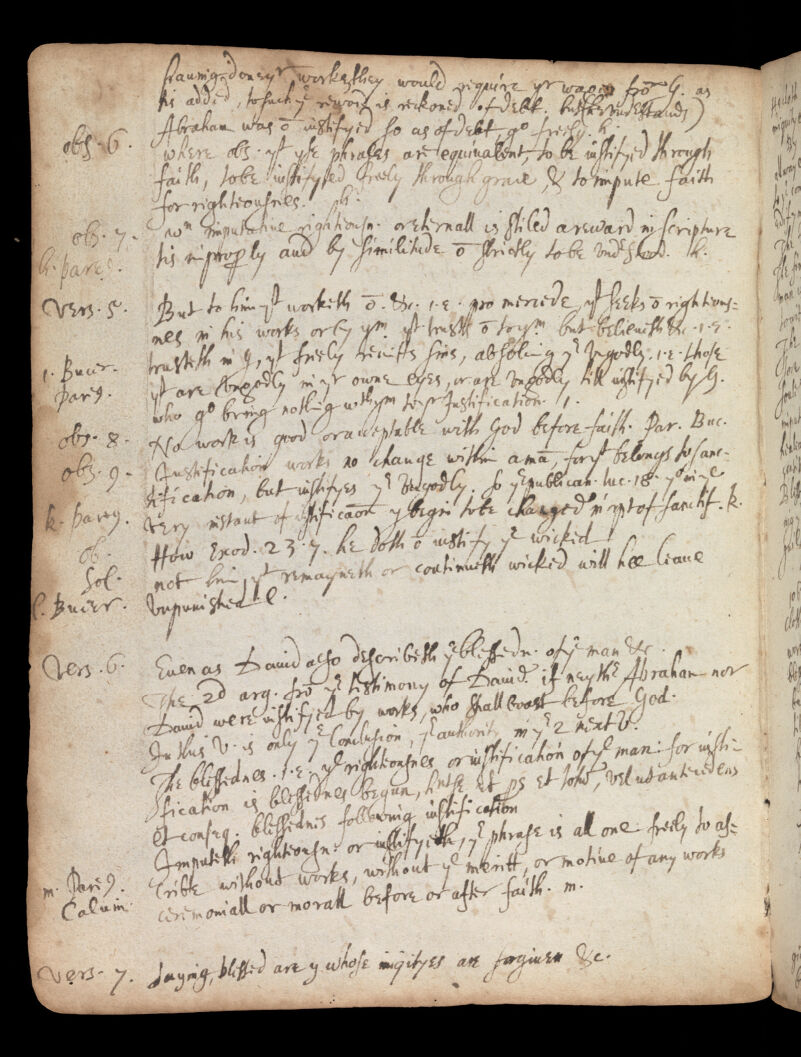 hauing done yr workes they would require yr wages frō G. as
his added, to such ye reward is reckoned of debt. but
Abraham was ō iustifyed so as of debt, go freely. h.
obs. 6. where obs. yt yse phrases are equivalent, to be iustifyed through
faith, to be iustifyed freely through grace, & to impute faith
for righteousnes. ph.
obs. 7. wn imputative righteousn. or eternall is stiled a reward in scripture
h. Pareg. tis improply and by similitude ō strictly to be vnderstood. h.
Vers. 5. But to him yt worketh ō. &c. i.e. pro mercede, yt seeks ō righteous-
nes in his works or by ym. yt trusts ō to ym. but beleiueth &c. i.e.
trusteth in G, yt freely remitts sins, absoluing ye vngodly. i.e. those
i. Bucer. yt are vngodly in yr owne eyes, or are vngodly till iustifyed by G.
Pareg. who go bring nothing with ym to yr Justification. i.
obs. 8. No work is good or acceptable with God before faith. Par. Buc.
obs. 9. Justification works no change within a mā, for yt belongs to sanc-
tification, but iustifyes ye vngodly. so ye publican. luc. 18. yo in ye
k. Pareg. very instant of iustificaōn y begin to be changed in rpt of sanctif. k.
ob. How Exod. 23. 7. he doth ō iustify ye wicked
Sol. not him, yt remayneth or continueth wicked will hee leaue
l. Bucer. vnpunished l.
Vers. 6. Euen as Dauid also describeth ye blessedn. of ye man &c.
The 2d arg. frō ye testimony of Dauid. if neythr Abraham nor
Dauid were iustifyed by works, who shall boast before God.
In this V. is only ye Conclusion, ye authority in ye 2 next V.
The blessednes. i.e. ye righteousnes or iustification of ye man: for iusti-
fication is blessednes begun, et ps et totū, vel ut antecedens
et conseq. blessednes following iustification
Imputeth righteousn: or iustifyeth, ye phrase is all one freely to as-
m. Pareg. cribe without works, without ye meritt, or motiue of any works
Caluin. ceremoniall or morall before or after faith. m.
Vers. 7. Saying, blessed are y whose iniqityes are forgiuen &c.